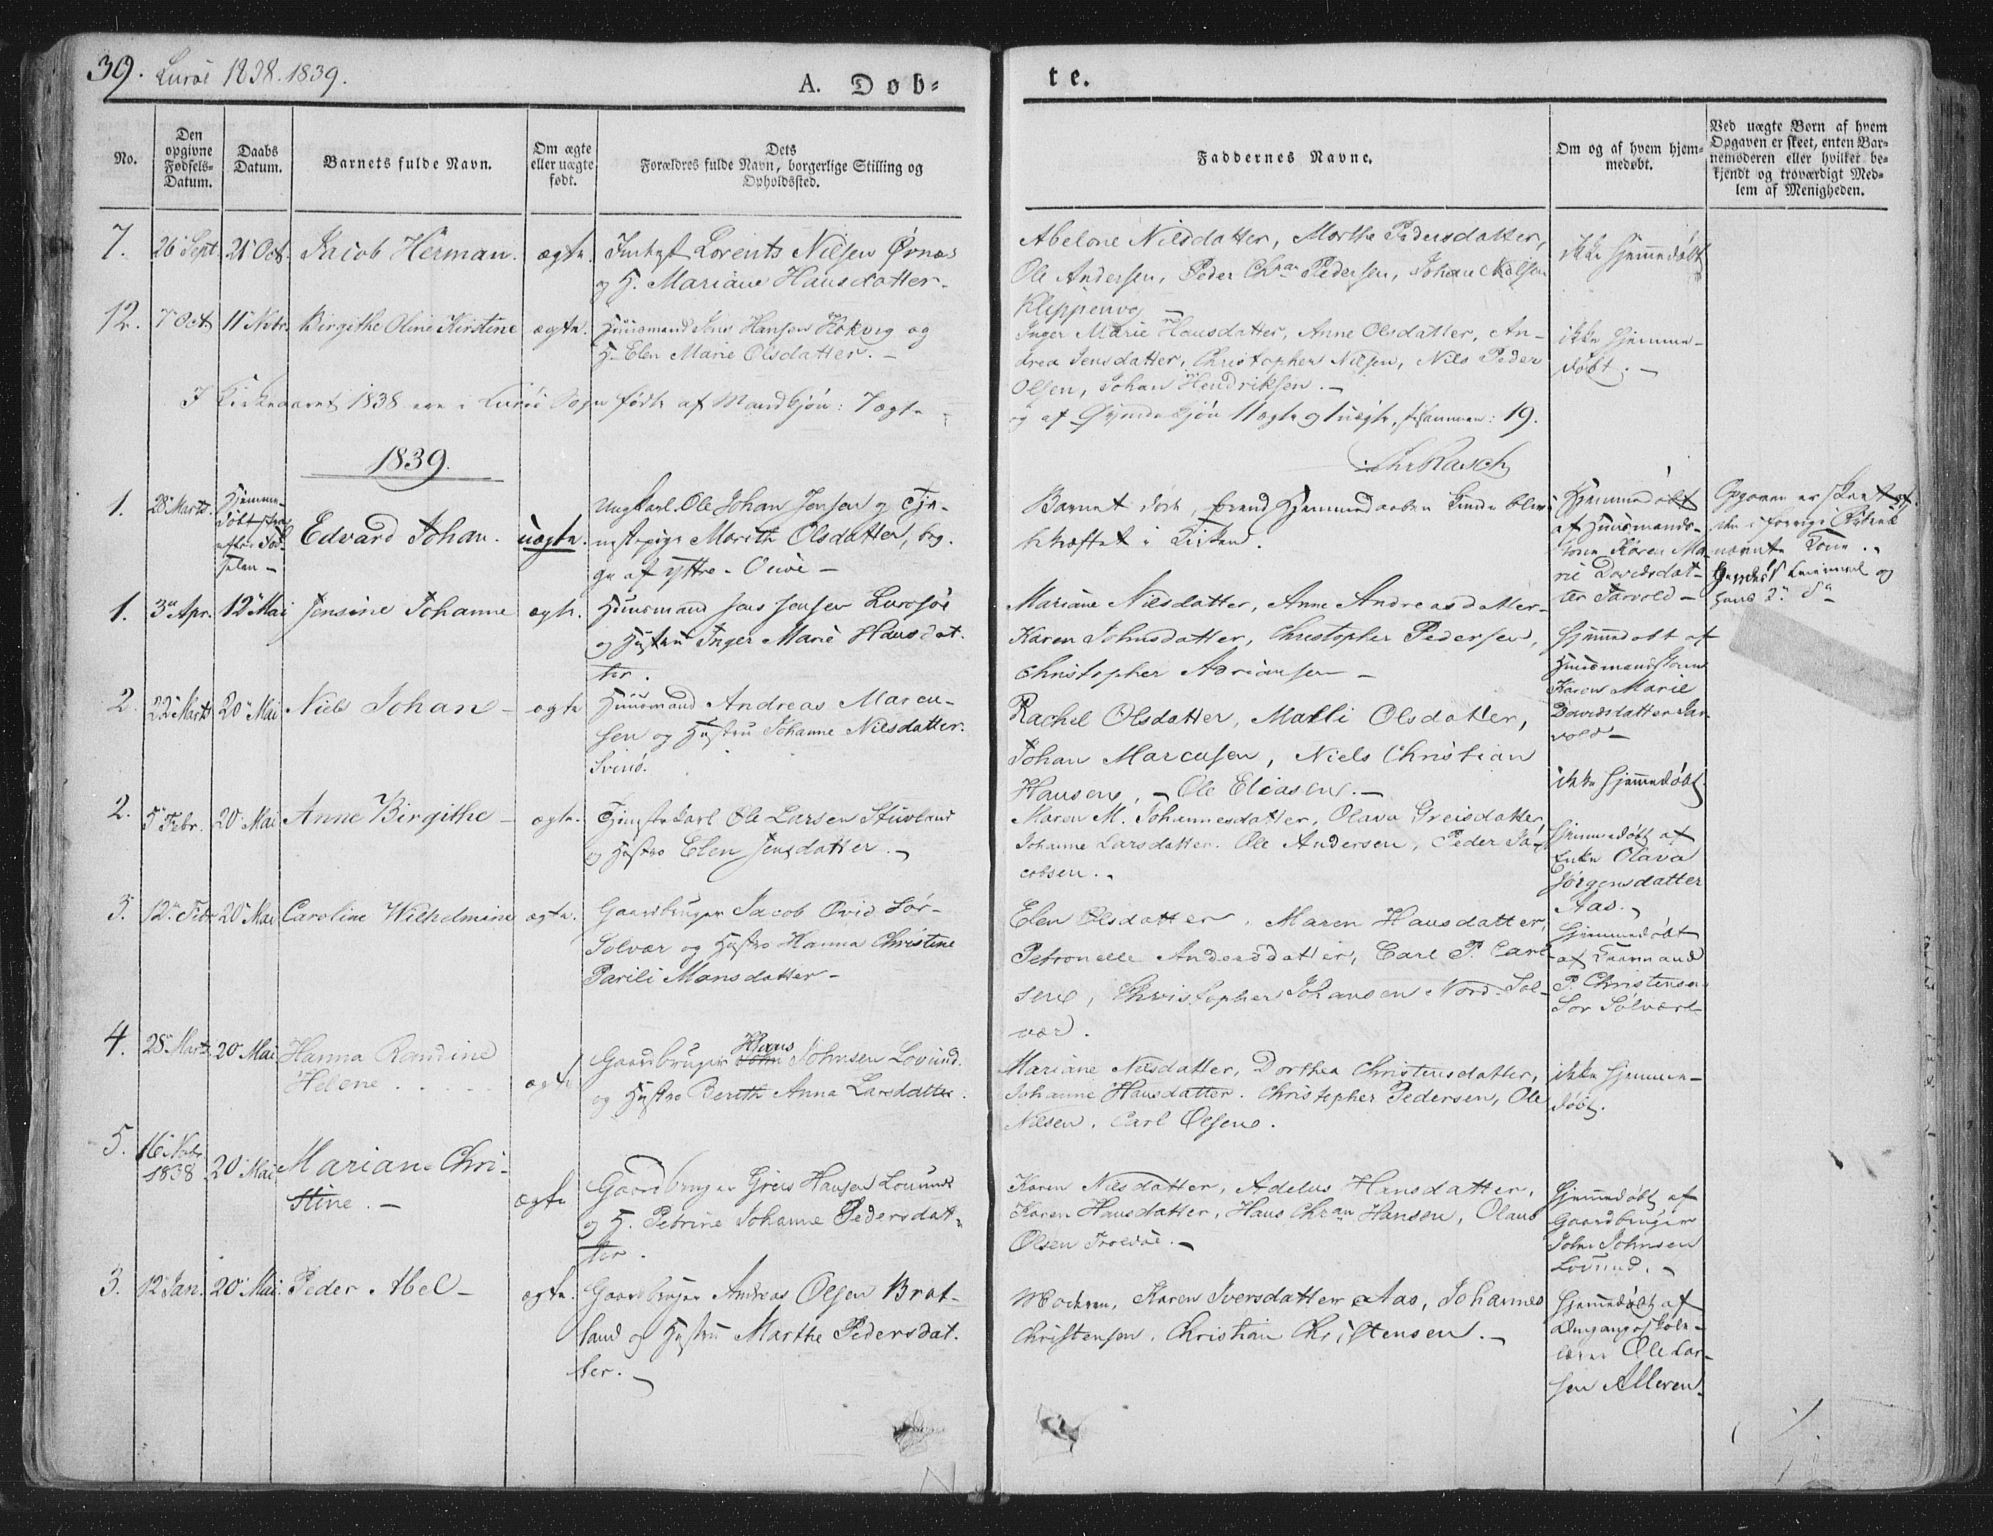 39. Lurøe 1838. 1839.
A. Døb-
te.
No.
Den opgivne Fødsels-Datum.
Daabs Datum.
Barnets fulde Navn.
Om ægte eller uægte født.
Dets
Forældres fulde Navn, borgerlige Stilling og
Opholdssted.
Faddernes Navne.
Om og af hvem hjem-
medøbt.
Ved uægte Børn af hvem
Opgaven er skeet, enten Bar-
nemoderen eller hvilket be-
kjendt og troværdigt Med-
lem af Menigheden.
7. 26 Sept 21 Oct. Jacob Herman. ægte. Lorents Nilsen Ørnæs
og H. Mariane Hansdatter.
Abelone Nilsdatter, Marthe Pedersdatter,
Ole Andersen, Peder Chran Pedersen, Johan Nilsen
Klippenvog
ikke hjemmedøbt
12. 7 Oct 11 Nvbr. Birgithe Oline Kirstine ægte. Huusmand Jens Hansen Hokvig og
H. Elen Marie Olsdatter.
Inger Marie Hansdatter, Anne Olsdatter, An-
drea Jensdatter, Christopher Nilsen, Nils Peder
Olsen, Johan Hendriksen.
ikke hjemme-
døbt.
I Kirkeaaret 1838 ere i Lurøe Sogn fødte af Mandkjøn: 7 ægte
og af Qvindekjøn 11 ægte og 1 uægte, tilsammen: 19.
1839.
Rasch
1. 28 Marts. Hjemme-
døbt
Edvard Johan. uægte. Ungkarl Ole Johan Jensen og Tje-
nestepige Marith Olsdatter, beg-
ge af Yttre-Qvive
Barnet døde, førend Hjemmedaaben kunde blive
bekræftet i Kirken.
Hjemmedøbt
af Huusmands-
kone Karen Ma-
rie Davidsdat-
ter Sarvold
Opgaven er skeet af
den i forrige Rubrik
nævnte Kone.
1. 3 Apr. 12 Mai Jensine Johanne ægte. Huusmand Jens Jensen Lurøe
og Hustru Inger Marie Hansdat-
ter.
Mariane Nilsdatter, Anne Andreasdatter
Karen Johnsdatter, Christopher Pedersen,
Christopher Adriansen
Hjemmedøbt af
Huusmandskone
Karen Marie
Davidsdatter Sar-
vold
2. 22 Marts 20 Mai Niels Johan ægte Huusmand Andreas Marcu-
sen og Hustru Johanne Nilsdatter.
Svinø.
Rachel Olsdatter, Malli Olsdatter,
Johan Marcusen, Niels Christian
Hansen, Ole Eliasen.
ikke hjemmedøbt
2. 5 Febr. 20 Mai Anne Birgithe ægte. Tjenestekarl Ole Larsen Stuvland
og Hustro Elen Jensdatter.
Maren M. Johannesdatter, Olava Greisdatter,
Johanne Larsdatter. Ole Andersen, Peder Ja-
cobsen.
Hjemmedøbt af
Enke Olava
Jørgensdatter
Aas.
3. 12 Febr 20 Mai Caroline Wilhelmine ægte. Gaardbruger Jacob Ovid Sør-
Solvær og Hustro Hanna Christine
Parili Monsdatter
Elen Olsdatter, Maren Hansdatter,
Petronelle Andersdatter, Carl P. Carl-
sen, Christopher Johansen Nord-Sol-
vær.
Hjemmedøbt
af
P. Christensen
Sør Solvær
4. 28 Marts 20 Mai Hanna Randine
Helene
ægte Gaardbruger Hans Johnsen Lovund.
og Hustro Berith Anna Larsdatter.
Mariane Nilsdatter, Dorthea Christensdatter,
Johanne Hansdatter. Christopher Pedersen, Ole
Nilsen, Carl Olsen.
ikke hjemme-
døbt.
5. 16 Nvbr
1838 20 Mai Mariane Chri-
stine.
ægte Gaardbruger Greis Hansen Lovund
og H. Petrine Johanne Pedersdat-
ter.
Karen Nilsdatter, Adelus Hansdatter,
Karen Hansdatter, Hans Chran Hansen, Olaus
Olsen
Hjemmedøbt af
Gaardbruger
John Johnsen
Lovund.
3. 12 Jan. 20 Mai Peder Abel ægte. Gaardbruger Andreas Olsen Brat-
land og Hustru Marthe Pedersdat-
ter.
Moderen, Karen Iversdatter Aas, Johannes
Christensen, Christian Christensen.
Hjemmedøbt af
Omgangsskole-
lærer Ole Lar-
sen Alleren.